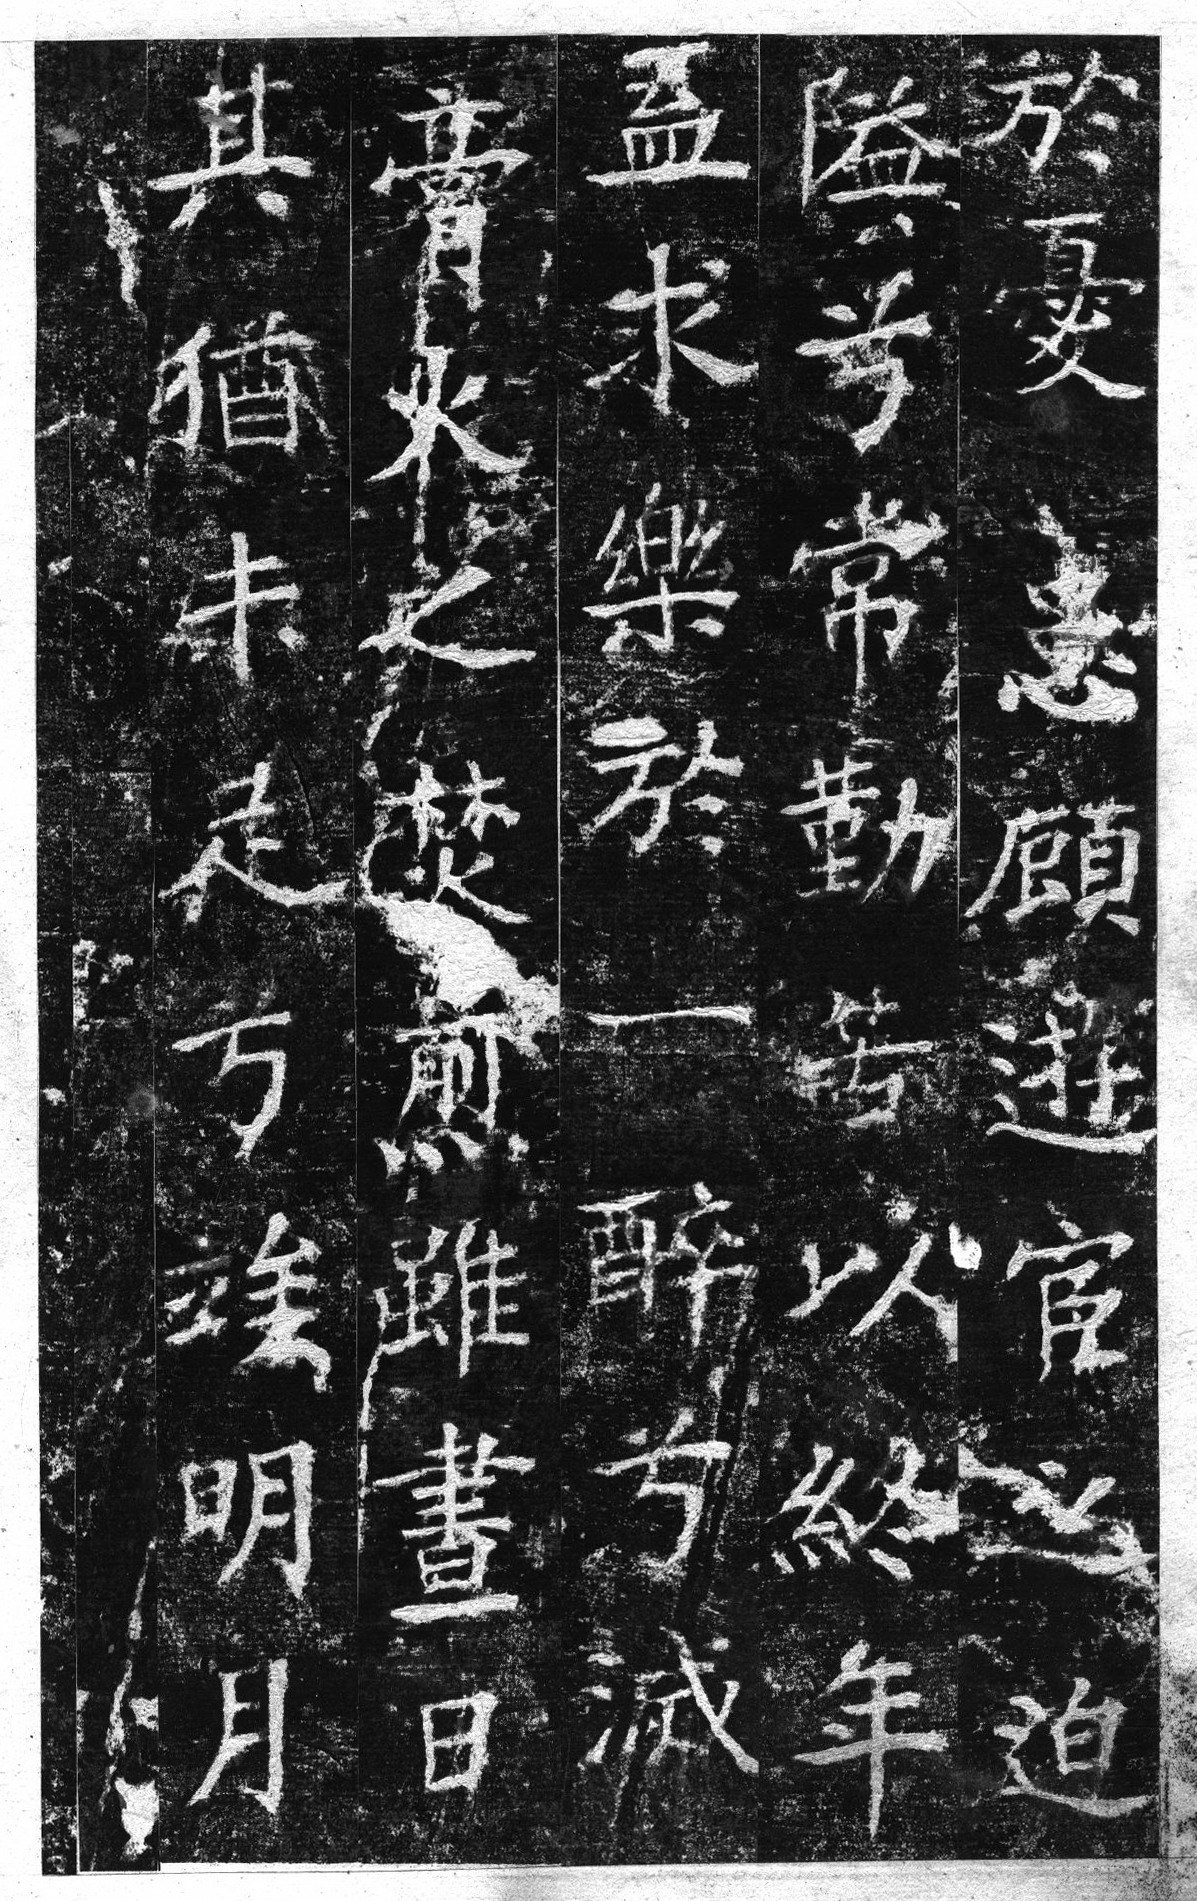 於憂患顧遊宦之迫
隘兮常勤苦以終年
盍求樂於一醉兮滅
膏火之焚煎雖晝日
其猶未足兮竢明月